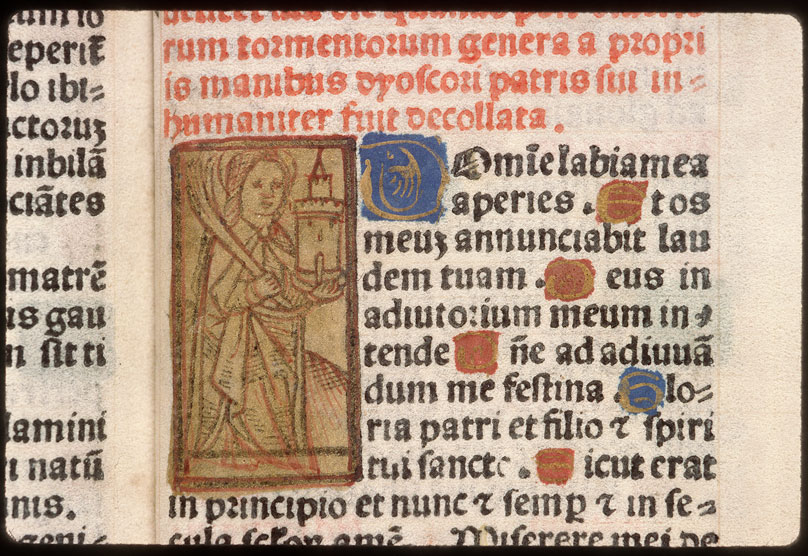 eperit̄
lo ibi⸗
ctoruꝫ
inbilā
ciātes
matrē
is gau
n sit ti
lamini
natū
nis.
rum tormentorum genera a propri
is manibus dyoscori patris sui in⸗
humaniter fuit decollata.
Domīe labia mea
aperies. Et os
meuꝫ annunciabit lau
dem tuam. Deus in
adiutorium meum in⸗
tende Dn̄e ad adiuuā
dum me festina. Glo⸗
ria patri et filio ⁊ spiri
tui sancto. Sicut erat
in principio et nunc ⁊ semꝑ ⁊ in se⸗
cula seculoꝝ amē. Miserere mei de